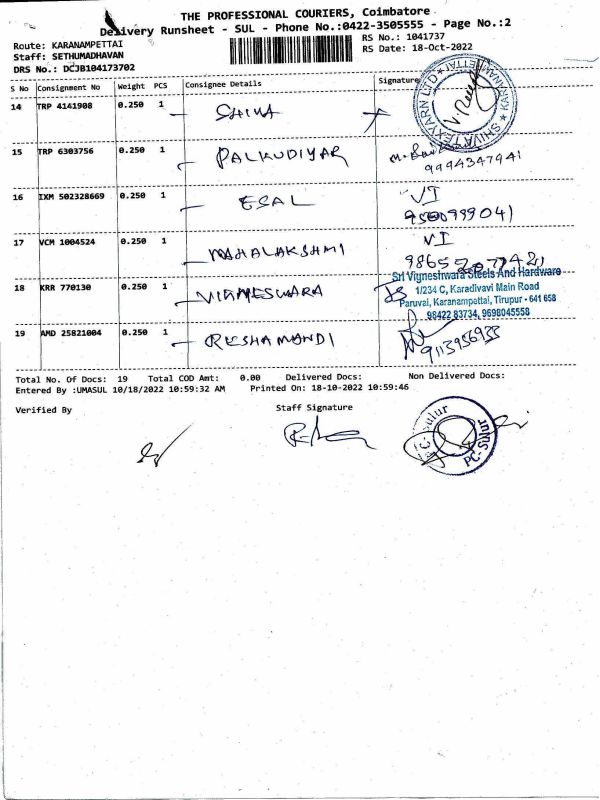 THE PROFESSIONAL COURIERS, Coimbatore
Delivery Runsheet - SUL - Phone No.:0422-3505555 - Page No.:2
Route: KARANAMPETTAI
RS No.: 1041737
Staff: SETHUMADHAVAN
RS Date: 18-Oct-2022
DRS No.: DCJB104173702
S No Consignment No Weight PCS Consignee Details Signature
14 TRP 4141908 0.250 1 SHIVA
SHIVA TEXYARN LTD KARANAMPETTAI
15 TRP 6303756 0.250 1 PALKUDIYAR
9994347941
16 IXM 502328669 0.250 1 ESAL VI
17 VCM 1004524 0.250 1 MAHALAKSHMI VI
18 KRR 770130 0.250 1 VIGNESWARA
Sri Vigneshwara Steels And Hardware
1/234 C, Karadivavi Main Road
Paruvai, Karanampettai, Tirupur - 641 658
98422 83734, 9698045558
19 AMD 25821004 0.250 1 RESHAMANDI
9113956933
Total No. Of Docs: 19 Total COD Amt: 0.00 Delivered Docs: Non Delivered Docs:
Entered By :UMASUL 10/18/2022 10:59:32 AM Printed On: 18-10-2022 10:59:46
Verified By Staff Signature
P.C. Sulur
PC-Sulur